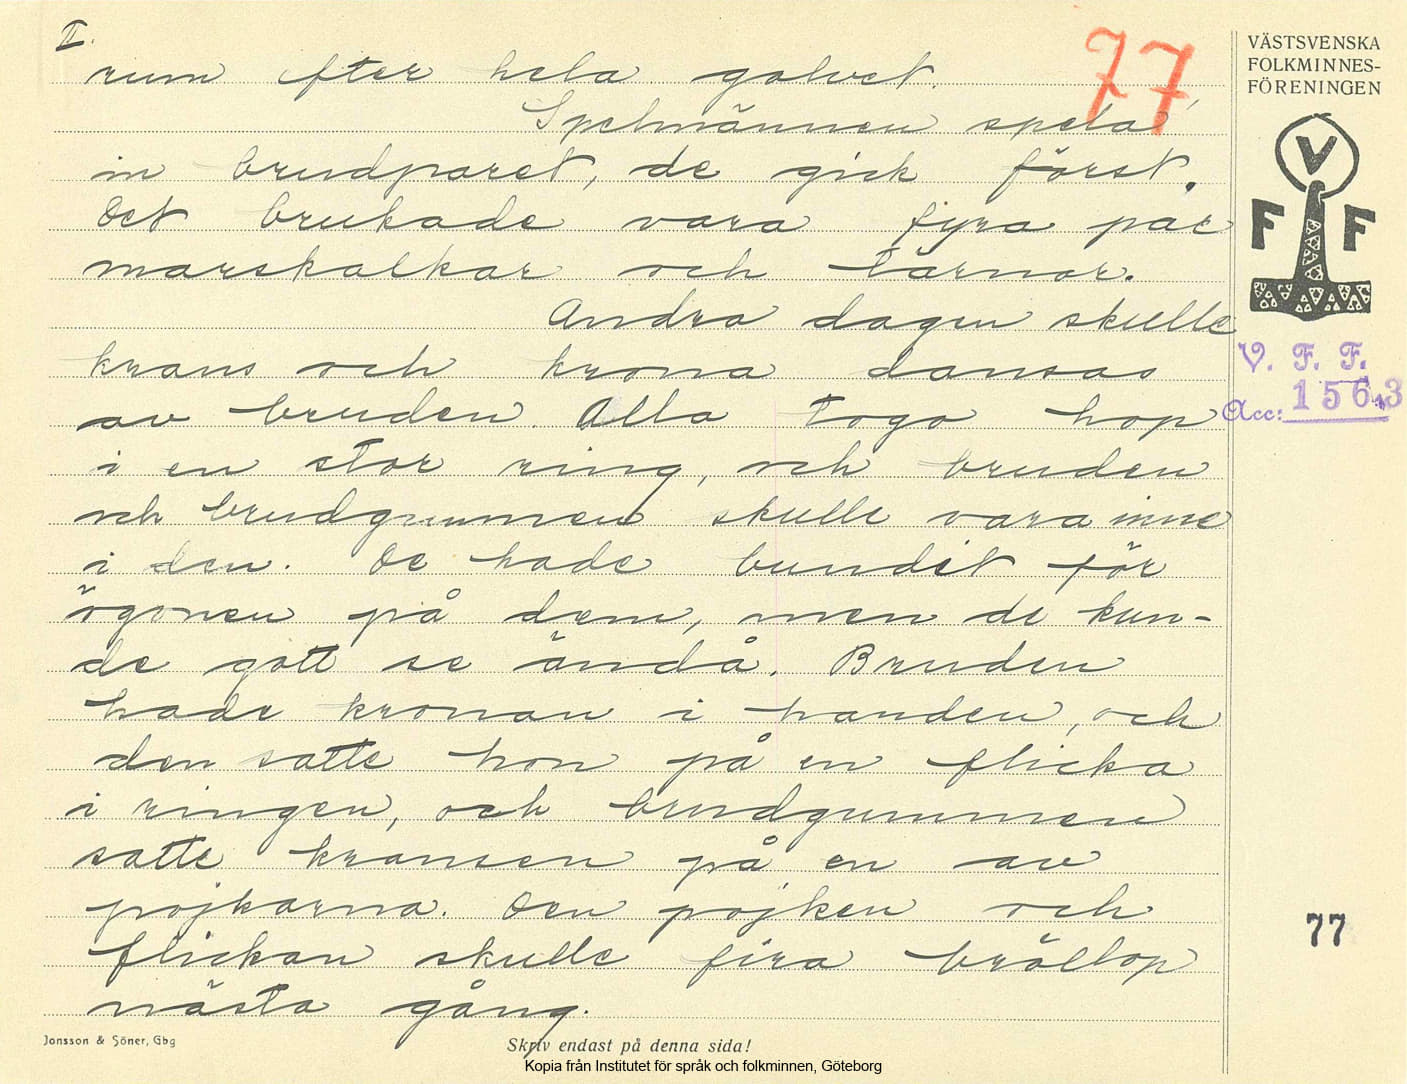 II.
rum efter hela golvet.
77
Spelmännen spela
in brudparet, de gick först.
Det brukade vara fyra par
marskalkar och tärnor.
Andra dagen skulle
krans och krona dansas
av bruden Alla togo hop
i en stor ring, och bruden
och brudgummen skulle vara inne
i den. De hade bundit för
ögonen på dem, men de kun-
de gott se ändå. Bruden
hade kronan i handen, och
den satte hon på en flicka
i ringen, och brudgummen
satte kransen på en av
pojkarna. Den pojken och
flickan skulle fira bröllop
nästa gång.
VÄSTSVENSKA
FOLKMINNES-
FÖRENINGEN
V
F F
V. F. F.
Acc: 1563
77
Jonsson & Söner, Gbg
Skriv endast på denna sida!
Kopia från Institutet för språk och folkminnen, Göteborg